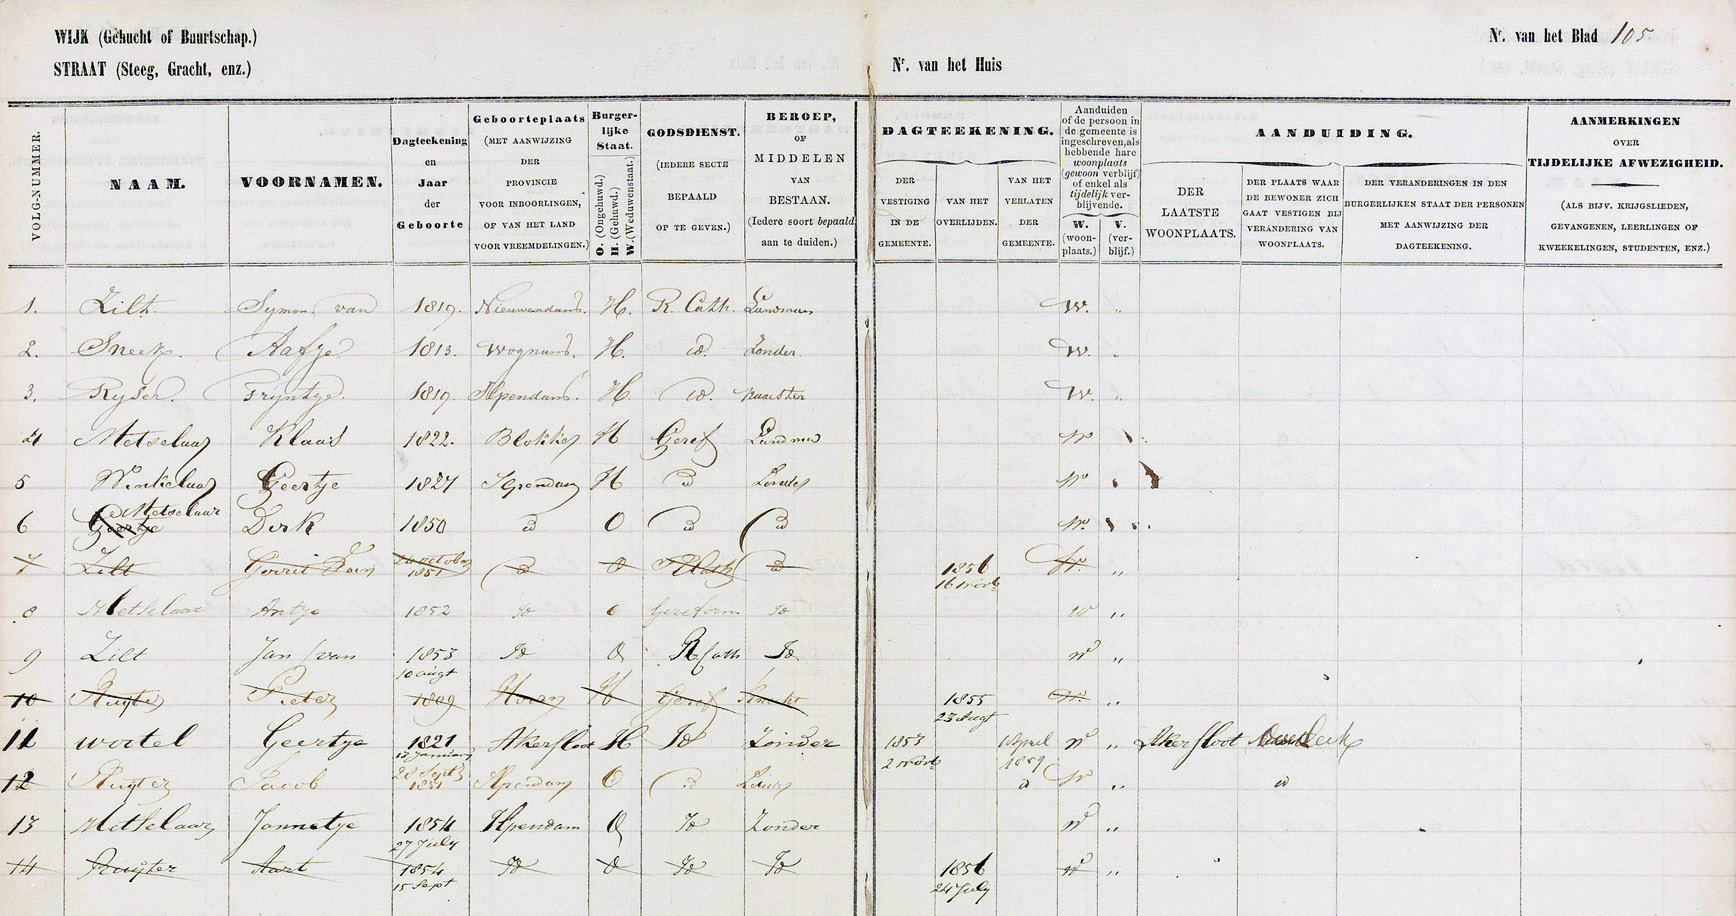 WIJK (Gehucht of Buurtschap.)
STRAAT (Steeg, Gracht, enz.)
Nr. van het Huis
Nr. van het Blad 105
VOLG-NUMMER.
NAAM.
VOORNAMEN.
Dagteekening en Jaar der Geboorte
Geboorteplaats (MET AANWIJZING DER PROVINCIE VOOR INBOORLINGEN, OF VAN HET LAND VOOR VREEMDELINGEN.)
Burgerlijke Staat.
O. (Ongehuwd.)
H. (Gehuwd.)
W. (Weduwenstaat.)
GODSDIENST. (IEDERE SECTE BEPAALD OP TE GEVEN.)
BEROEP, OF MIDDELEN VAN BESTAAN. (Iedere soort bepaald aan te duiden.)
DAGTEEKENING.
DER VESTIGING IN DE GEMEENTE.
VAN HET OVERLIJDEN.
VAN HET VERLATEN DER GEMEENTE.
Aanduiden of de persoon in de gemeente is ingeschreven, als hebbende hare woonplaats (gewoon verblijf) of enkel als tijdelijk verblijvende.
W. (woonplaats.)
V. (verblijf.)
AANDUIDING.
DER LAATSTE WOONPLAATS.
DER PLAATS WAAR DE BEWONER ZICH GAAT VESTIGEN BIJ VERANDERING VAN WOONPLAATS.
DER VERANDERINGEN IN DEN BURGERLIJKEN STAAT DER PERSONEN MET AANWIJZING DER DAGTEEKENING.
AANMERKINGEN OVER TIJDELIJKE AFWEZIGHEID. (ALS BIJV. KRIJGSLIEDEN, GEVANGENEN, LEERLINGEN OF KWEEKELINGEN, STUDENTEN, ENZ.)
1. Zilt. Symon van 1819. Nieuwendam. H. R. Cath. Landman W. "
2. Sneek. Aafje 1813. Wognum. H. id. Zonder. W. "
3. Ryser. Tryntje. 1819. Ilpendam. H. id. W. "
4 Metselaar Klaas 1822. Blokker H Geref W
5 Winkelaar Geertje 1827 Ilpendam H id Zonder W
6 Geertje Metselaar Dirk 1850 id O id id W.
7 Zilt Gerrit 24 october 1851 id O R Cath id 1856 16 novb W. "
8 Metselaar Antje 1852 Id O Gereform Id W "
9 Zilt Jan van 1853 10 augt Id O R Cath Id W "
10 Ruyter Pieter 1809 Hoorn H Geref Knecht 1855 23 Augt W. "
11 Wortel Geertje 1821 13 January Akersloot H Id Zonder 1853 2 novb April 1859 W " Akersloot
12 Ruyter Jacob 28 Sept 1851 Ilpendam O id Zonder id W " id
13 Metselaar Jannetje 1854 27 July Ilpendam O Id Zonder W "
14 Ruyter Aart 1854 15 Sept Id O Id Id 1856 24 July W "